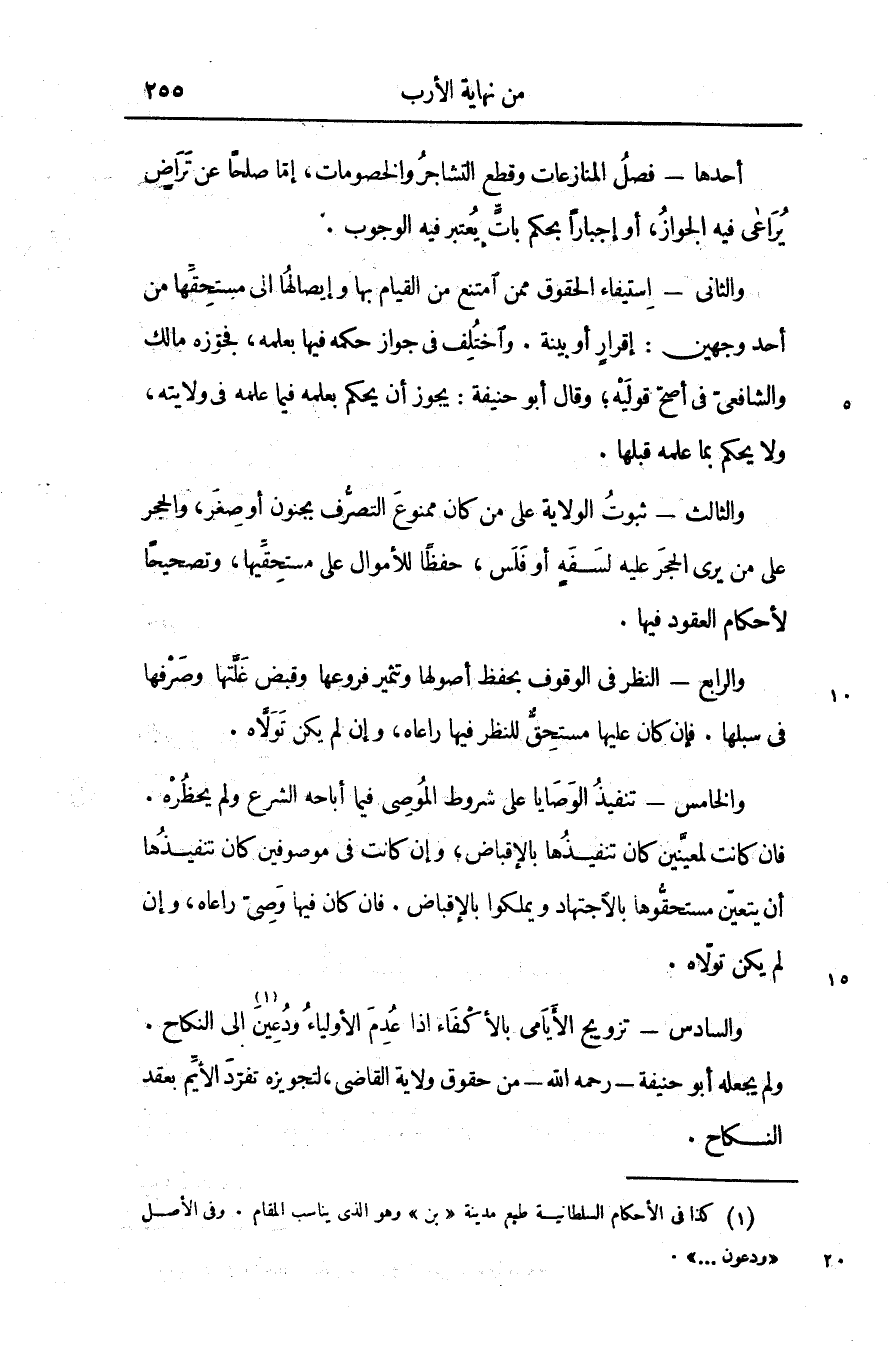 من نهاية الأرب ٢٥٥
أحدها — فصلُ المنازعات وقطع التشاجُر والخصومات، إمّا صلحًا عن تَرَاضٍ
يُرَاعٰى فيه الجوازُ، أو إجباراً بحكم باتٍّ يُعتبر فيه الوجوب .
والثانى — اِستيفاء الحقوق ممن اَمتنع من القيام بها وإيصالُها الى مستحقِّها من
أحد وجهين : إقرارٍ أو بينة . واَختُلِف فى جواز حكمه فيها بعلمه، فجوّزه مالك
والشافعىّ فى أصحّ قولَيْه؛ وقال أبو حنيفة : يجوز أن يحكم بعلمه فيما علمه فى ولايته، ٥
ولا يحكم بما علمه قبلها .
والثالث — ثبوتُ الولاية على من كان ممنوعَ التصرُّف بجنون أو صِغَر، والحجر
على من يرى الحجرَ عليه لسَـفَهٍ أو فَلَس ، حفظًا للأموال على مستحِقِّيها، وتصحيحًا
لأحكام العقود فيها .
والرابع — النظر فى الوقوف بحفظ أصولها وتثمير فروعها وقبض غَلَّتها وصَرْفها ١٠
فى سبلها . فإن كان عليها مستحِقٌّ للنظر فيها راعاه، وإن لم يكن تَوَلَّاه .
والخامس — تنفيذُ الوَصَايا على شروط المُوصِى فيما أباحه الشرع ولم يحظُرْه .
فان كانت لمعيَّنين كان تنفيـذُها بالإقباض؛ وإن كانت فى موصوفين كان تنفيـذُها
أن يتعيّن مستحقُّوها بالاَجتهاد ويملكوا بالإقباض . فان كان فيها وَصِىّ راعاه، وإن
لم يكن تولّاه . ١٥
والسادس — تزويج الأَيَامى بالأكْفَاء اذا عُدِمَ الأولياءُ ودُعِينَ (١) الى النكاح .
ولم يجعله أبو حنيفة — رحمه الله — من حقوق ولاية القاضى، لتجويزه تفرّدَ الأيِّم بعقد
النــكاح .
(١) كذا فى الأحكام السلطانيـة طبع مدينة « بن » وهو الذى يناسب المقام . وفى الأصـل
«ودعون ...» . ٢٠